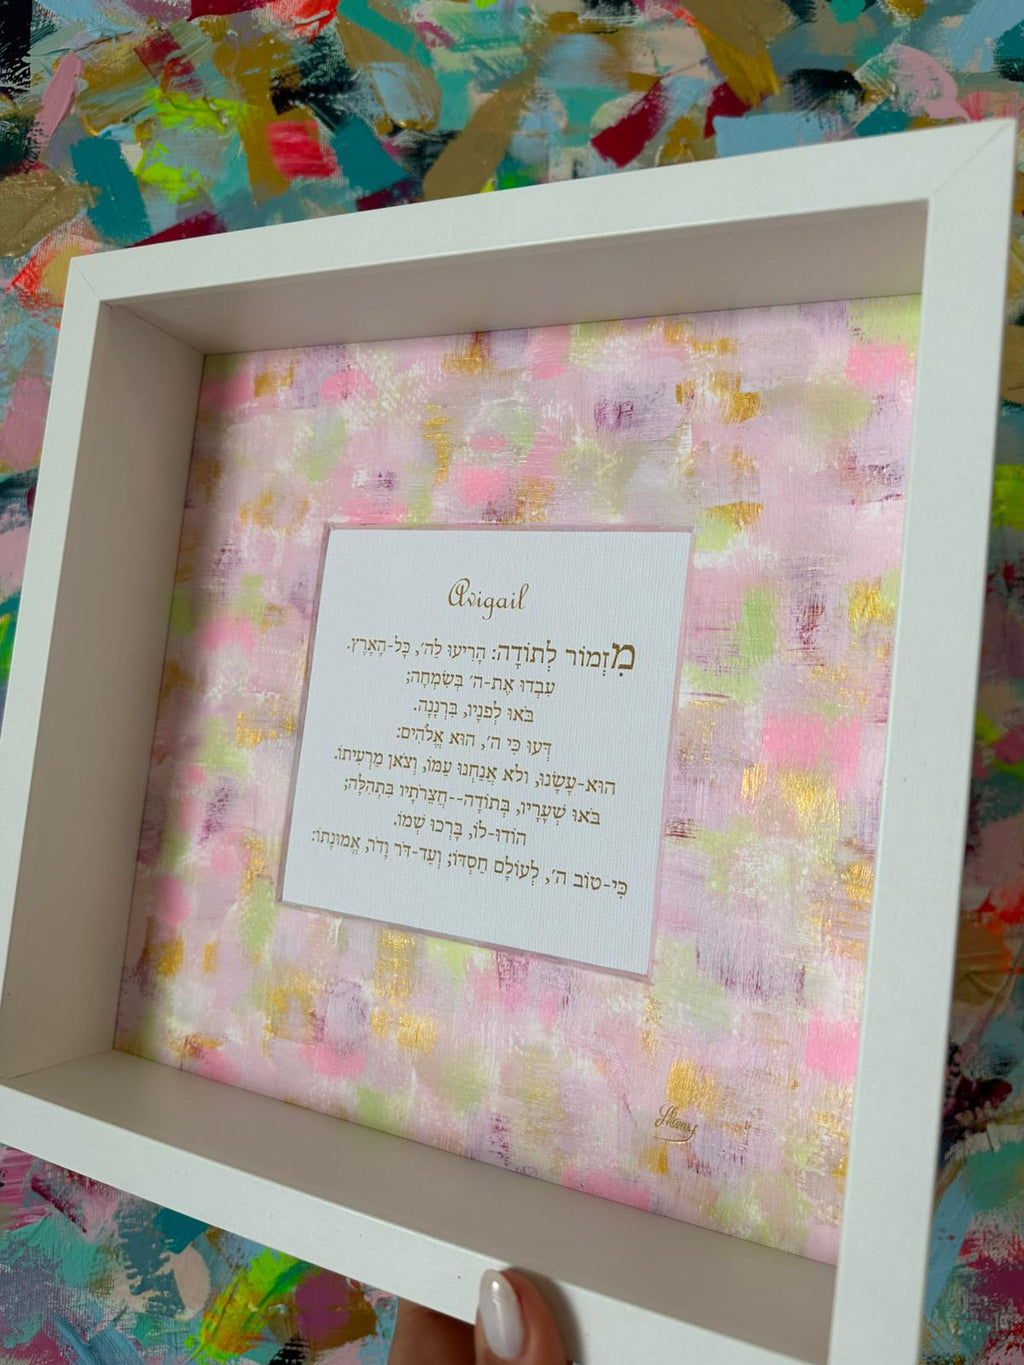 Avigail
מִזְמוֹר לְתוֹדָה: הָרִיעוּ לַה׳, כָּל-הָאָרֶץ.
עִבְדוּ אֶת-ה׳ בְּשִׂמְחָה;
בֹּאוּ לְפָנָיו, בִּרְנָנָה.
דְּעוּ כִּי ה׳, הוּא אֱלֹהִים:
הוּא-עָשָׂנוּ, ולֹא אֲנַחְנוּ עַמּוֹ, וְצֹאן מַרְעִיתוֹ.
בֹּאוּ שְׁעָרָיו, בְּתוֹדָה--חֲצֵרֹתָיו בִּתְהִלָּה;
הוֹדוּ-לוֹ, בָּרְכוּ שְׁמוֹ.
כִּי-טוֹב ה׳, לְעוֹלָם חַסְדּוֹ; וְעַד-דֹּר וָדֹר, אֱמוּנָתוֹ: